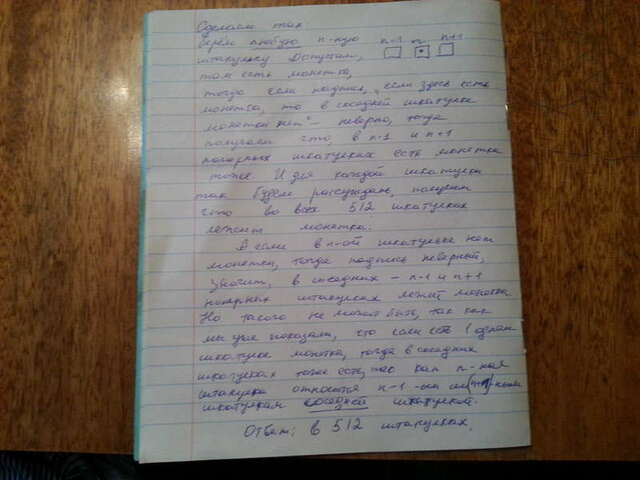 Сделаем так
берём любую n-ную n-1 n n+1
шкатулку Допустим,
там есть монетка,
тогда если надпись „если здесь есть
монетка, то в соседней шкатулке
монетки нет" - неверно, тогда
получаем что, в n-1 и n+1
номерных шкатулках есть монетка
тоже. И для каждой шкатулки
так будем рассуждать, получим
что во всех 512 шкатулках
лежит монетка.
А если в n-ой шкатулке нет
монетки, тогда надпись неверный,
Значит, в соседних - n-1 и n+1
номерных шкатулках лежит монетка
Но такого не может быть, так как
мы уже показали, что если есть 1 одной
шкатулке монетка, тогда в соседних
шкатулках тоже есть, так как n-ная
шкатулка относится n-1 -ым и (n+1)-ным
шкатулкам соседней шкатулкой.
Ответ: в 512 шкатулках.